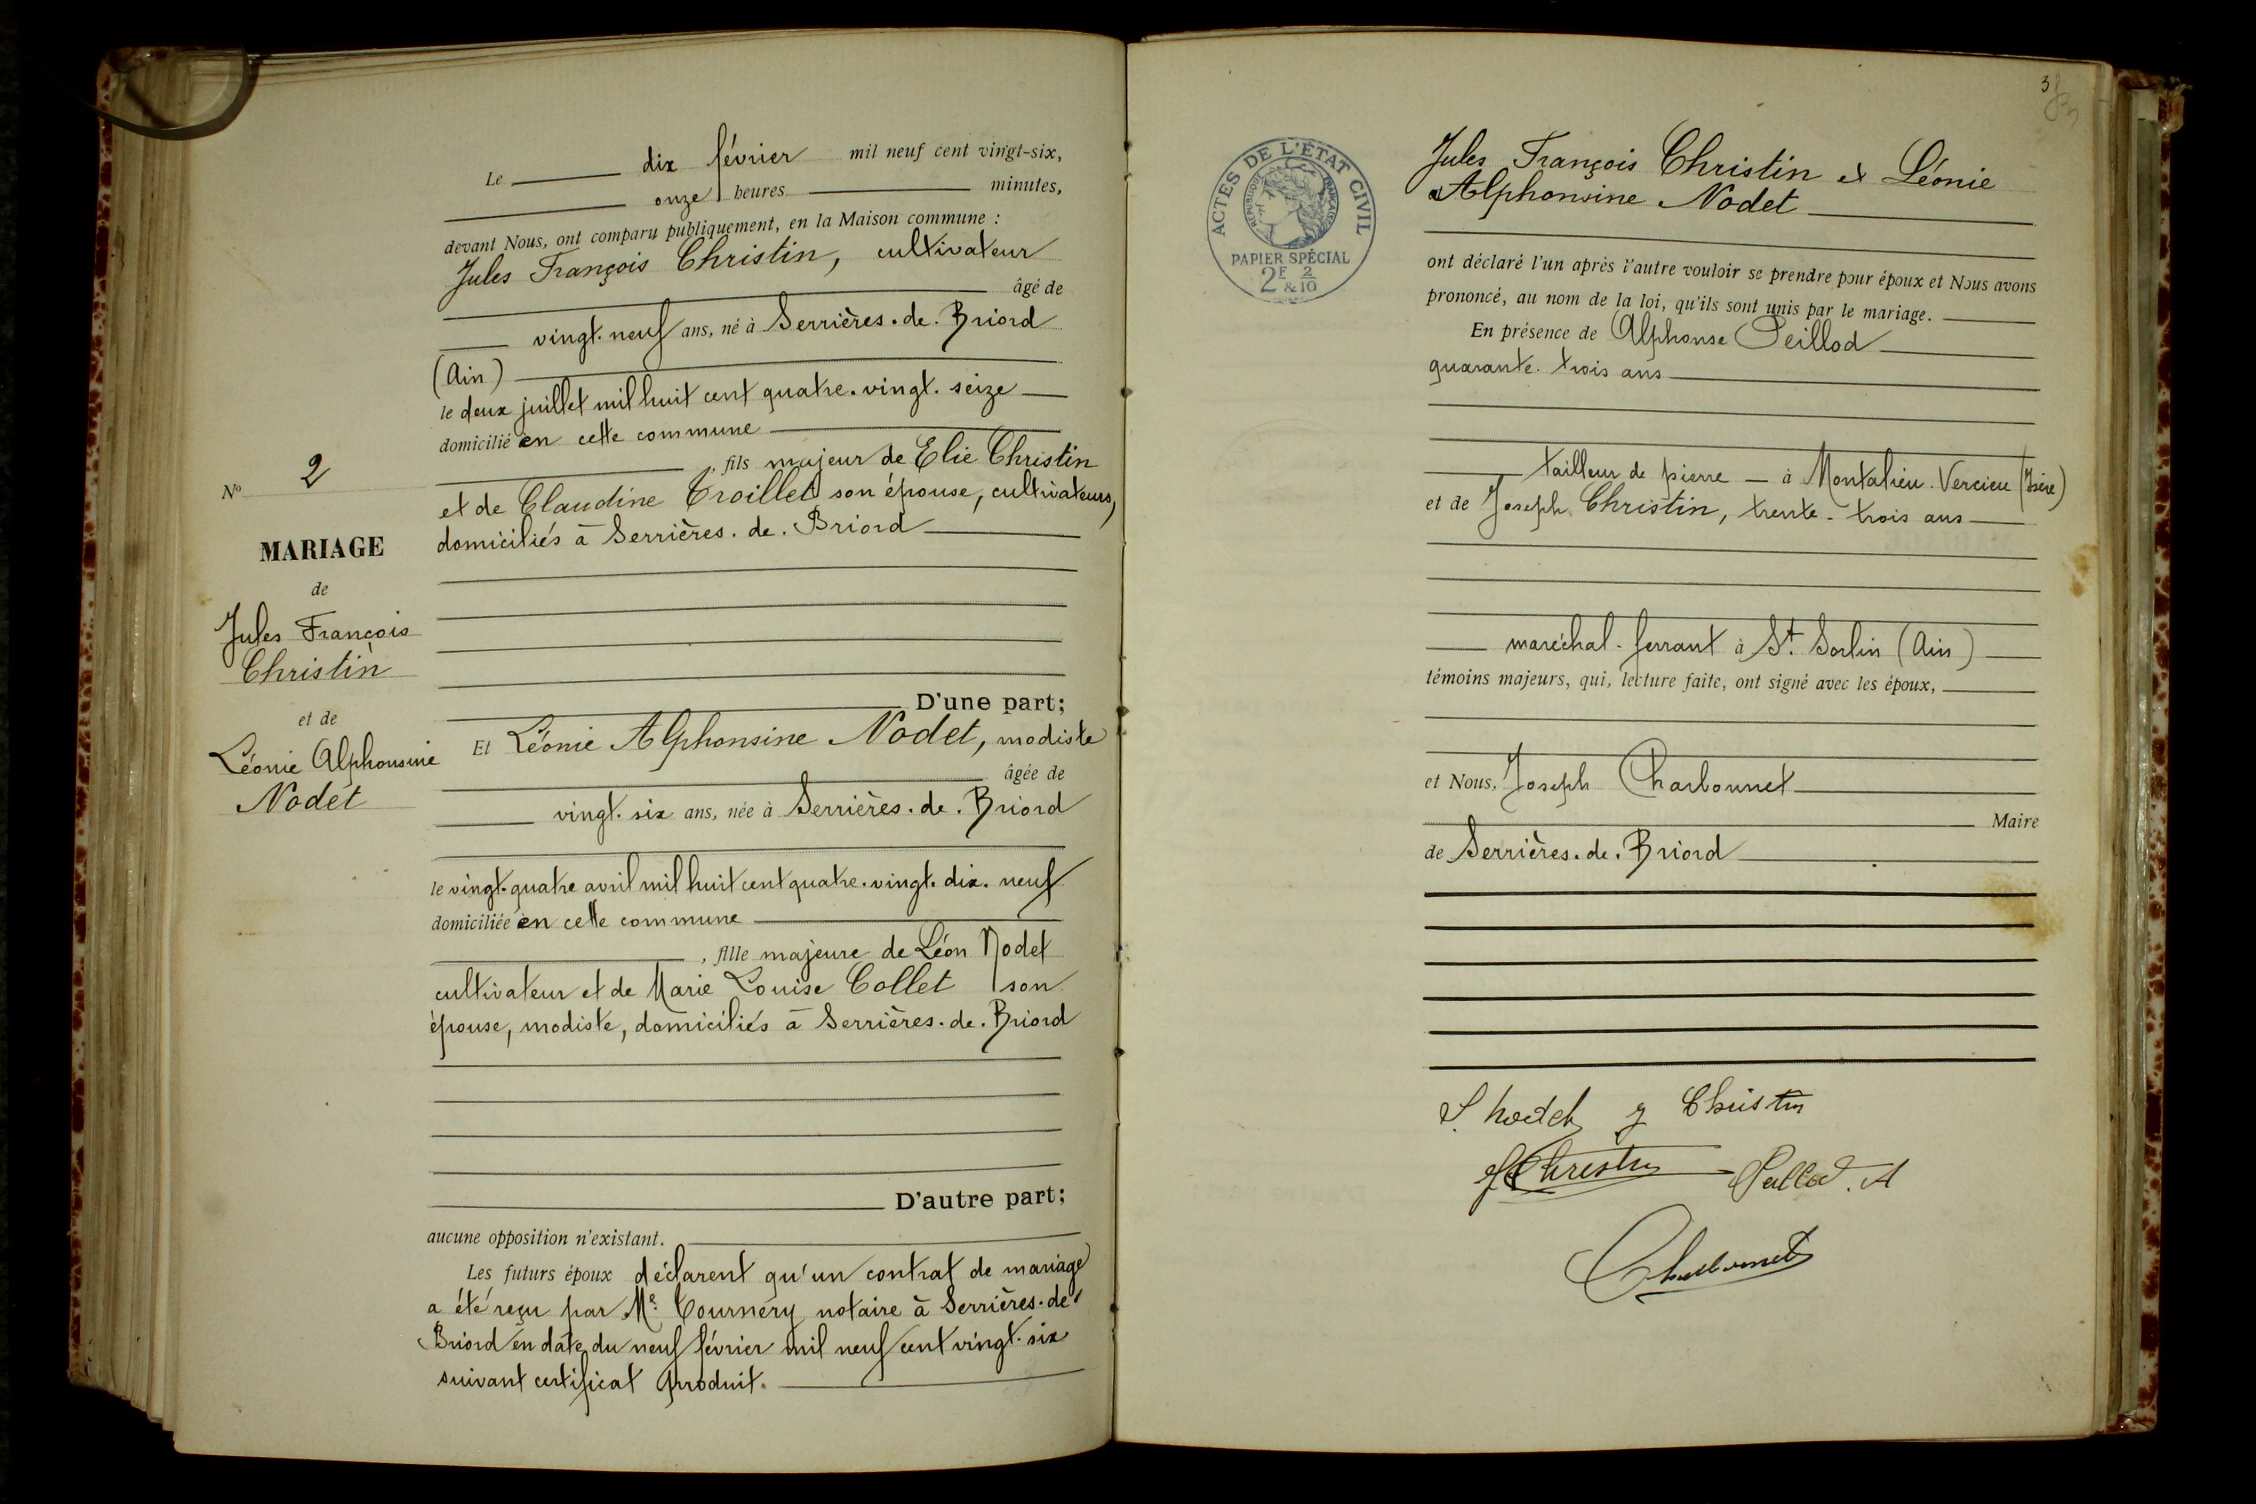 Le dix février mil neuf cent vingt-six,
onze heures minutes,
devant Nous, ont comparu publiquement, en la Maison commune :
Jules François Christin, cultivateur
âgé de
vingt-neuf ans, né à Serrières-de-Briord
(Ain)
le deux juillet mil huit cent quatre-vingt-seize
domicilié en cette commune
, fils majeur de Elie Christin
et de Claudine Troillet son épouse, cultivateurs,
domiciliés à Serrières-de-Briord
No 2
MARIAGE
de
Jules François
Christin
et de
Léonie Alphonsine
Nodet
D'une part;
Et Léonie Alphonsine Nodet, modiste
âgée de
vingt-six ans, née à Serrières-de-Briord
le vingt-quatre avril mil huit cent quatre-vingt-dix-neuf
domiciliée en cette commune
, fille majeure de Léon Nodet
cultivateur et de Marie Louise Collet son
épouse, modiste, domiciliés à Serrières-de-Briord
D'autre part;
aucune opposition n'existant.
Les futurs époux déclarent qu'un contrat de mariage
a été reçu par Me Tournery notaire à Serrières-de-
Briord en date du neuf février mil neuf cent vingt-six
suivant certificat produit.
3
ACTES DE L'ÉTAT CIVIL
RÉPUBLIQUE FRANÇAISE
PAPIER SPÉCIAL
2F & 2/10
Jules François Christin et Léonie
Alphonsine Nodet
ont déclaré l'un après l'autre vouloir se prendre pour époux et Nous avons
prononcé, au nom de la loi, qu'ils sont unis par le mariage.
En présence de Alphonse Peillod
quarante-trois ans
tailleur de pierre — à Montalieu-Vercieu (Isère)
et de Joseph Christin, trente-trois ans
maréchal-ferrant à St Sorlin (Ain)
témoins majeurs, qui, lecture faite, ont signé avec les époux,
et Nous, Joseph Charbonnet
Maire
de Serrières-de-Briord
L. Nodet J Christin
J Christin Peillod. A
Charbonnet